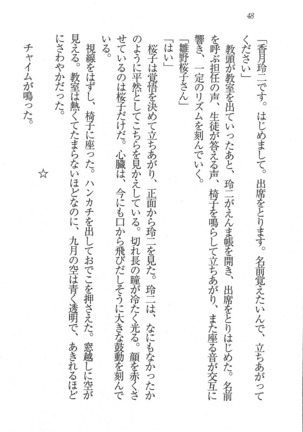 48
「香月玲二です。はじめまして。出席をとります。名前覚えたいんで、立ちあがって
ください」
教頭が教室を出ていったあと、玲二がえんま帳を開き、出席をとりはじめた。名前
を呼ぶ担任の声、生徒が答える声、椅子を鳴らして立ちあがり、また座る音が交互に
響き、一定のリズムを刻んでいく。
「雛野桜子さん」
「はい」
桜子は覚悟を決めて立ちあがり、正面から玲二を見た。玲二は、なにもなかったか
のように平然としてこちらを見かえしている。切れ長の瞳が冷たく光る。顔を赤くさ
せているのは桜子だけだ。心臓は、今にも口から飛びだしそうに大きな鼓動を刻んで
いる。
視線をはずし、椅子に座った。ハンカチを出しておでこを押さえた。窓越しに空が
見える。教室は熱くてたまらないほどなのに、九月の空は青く透明で、あきれるほど
にさわやかだった。
☆
チャイムが鳴った。